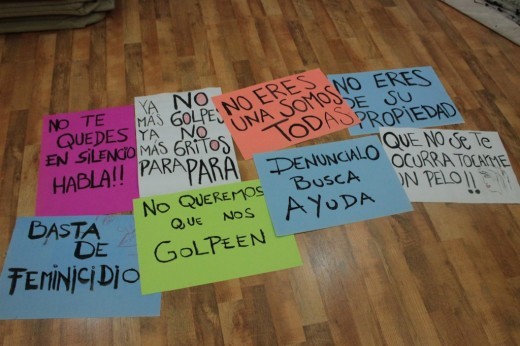 NO TE
QUEDES
EN SILENCIO
HABLA!!
YA NO
MÁS GOLPES
YA NO
MÁS GRITOS
PARA PARA
NO ERES
UNA SOMOS
TODAS
NO ERES
DE SU
PROPIEDAD
QUE NO SE TE
OCURRA TOCARME
UN PELO!!
DENUNCIALO
BUSCA
AYUDA
NO QUEREMOS
QUE NOS
GOLPEEN
BASTA
DE
FEMINICIDIO